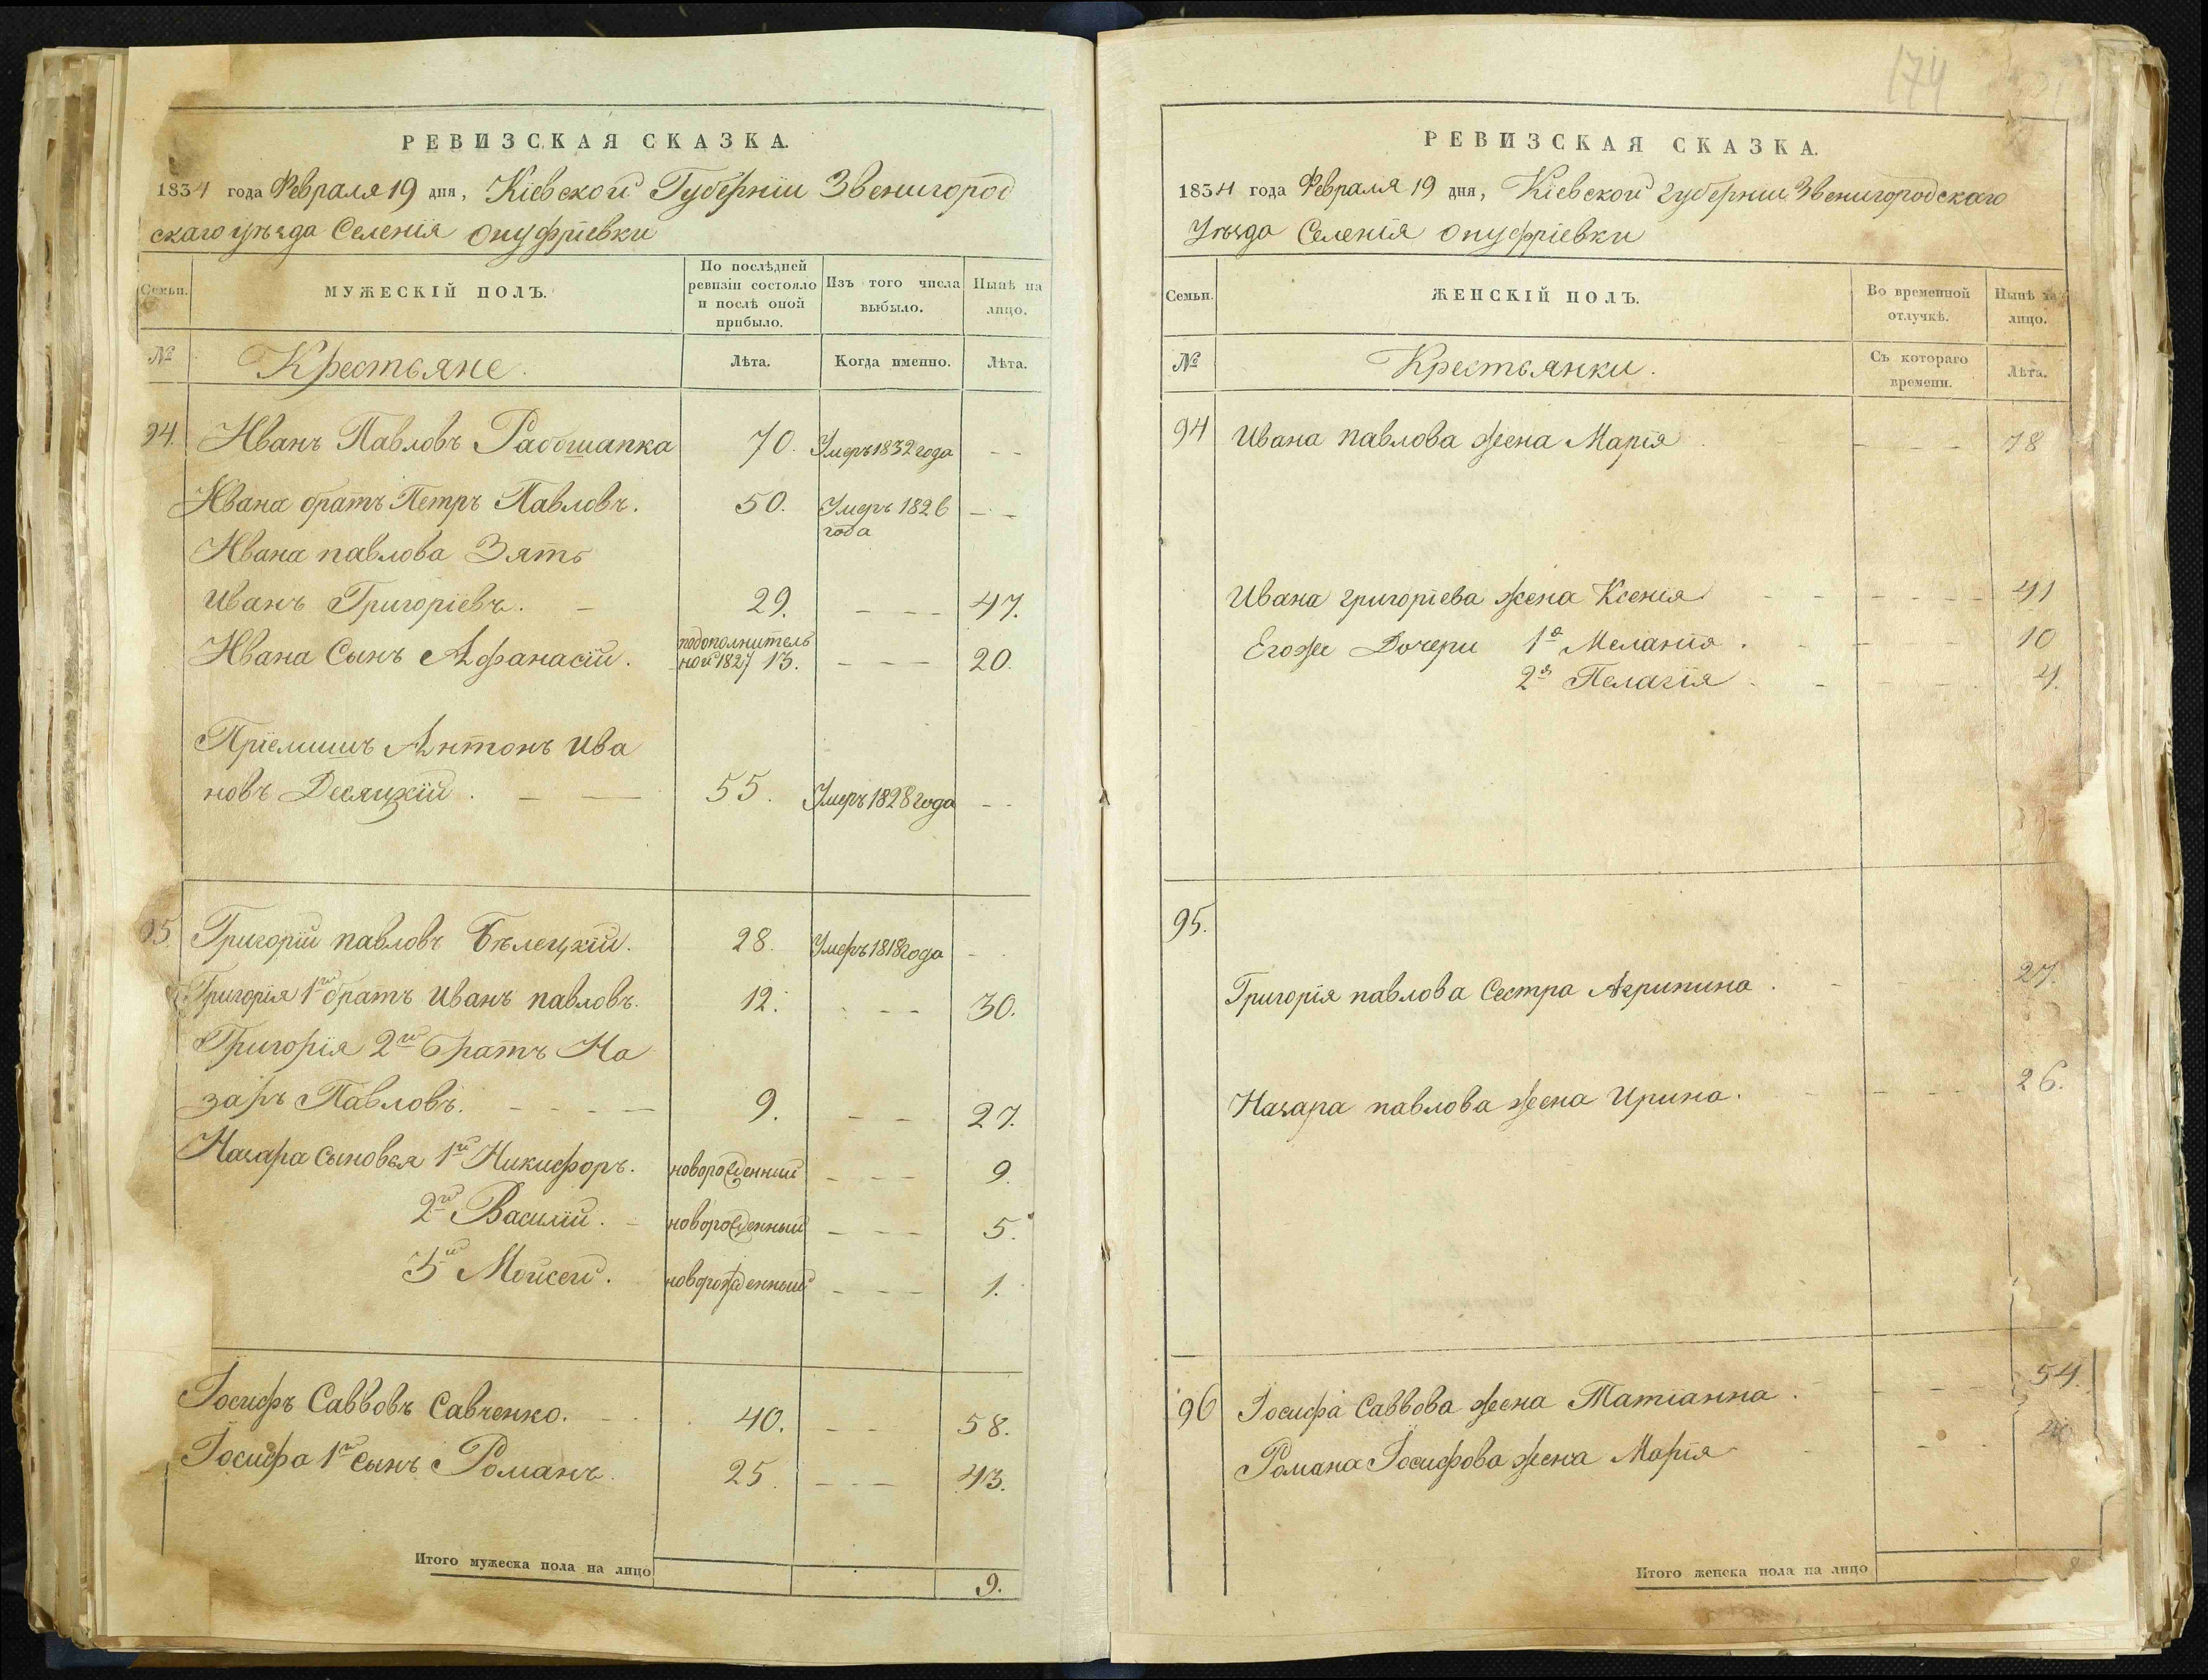 РЕВИЗСКАЯ СКАЗКА.
1834 года Февраля 19 дня, Кіевской Губерніи Звенигород
скаго уѣзда Селенія Онуфріевки
Семьи.
МУЖЕСКІЙ ПОЛЪ.
По послѣдней ревизіи состояло и послѣ оной прибыло.
Изъ того числа выбыло.
Нынѣ на лицо.
№
Крестьяне.
Лѣта.
Когда именно.
Лѣта.
94. Иванъ Павловъ 70. Умеръ 1832 года - -
Ивана братъ Петръ Павловъ. 50. Умеръ 1826 года - -
Ивана павлова Зять
Иванъ Григоріевъ. - 29. - - - 47.
Ивана Сынъ Афанасій. подополнитель ной 1827 13. - - - 20.
Пріемышъ Антонъ Ива
новъ Десяцкій. - - 55. Умеръ 1828 года - -
95. Григорій павловъ Бѣлецкій. 28. Умеръ 1818 года - -
Григорія 1й братъ Иванъ павловъ. 12. - - - 30.
Григорія 2й братъ На
заръ Павловъ. - - - - 9. - - - 27.
Назара сыновья 1й Никифоръ. новорожденный - - - 9.
2й Василій. - новорожденный - - - 5.
3й Мойсей. новорожденный - - - 1.
Іосифъ Саввовъ Савченко. - 40. - - 58.
Іосифа 1й сынъ Романъ. 25. - - - 43.
Итого мужеска пола на лицо 9.
174
РЕВИЗСКАЯ СКАЗКА.
1834 года Февраля 19 дня, Кіевской губерніи Звенигородскаго
Уѣзда Селенія Онуфріевки
Семьи.
ЖЕНСКІЙ ПОЛЪ.
Во временной отлучкѣ.
Нынѣ на лицо.
№
Крестьянки.
Съ котораго времени.
Лѣта.
94 Ивана павлова жена Марія - - - 78
Ивана григоріева жена Ксенія - - - - - 41
Егоже Дочери 1я Меланія. - - - 10
2я Пелагія - - - 4.
95.
Григорія павлова Сестра Агрипина. - - - 27.
Назара павлова жена Ирина. - - - 26.
96 Іосифа Саввова жена Татіанна. - - - 54.
Романа Іосифова жена Марія - - -
Итого женска пола на лицо